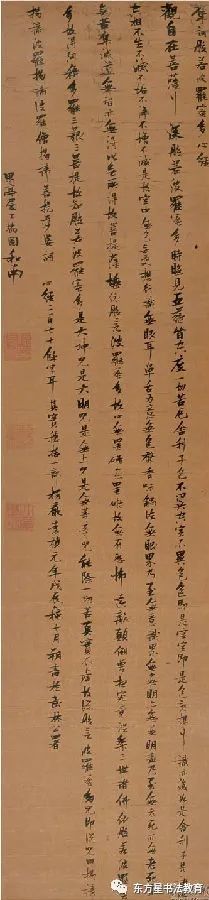 摩訶般若波羅蜜多心經
觀自在菩薩行深般若波羅蜜多時照見五蘊皆空度一切苦厄舍利子色不異空空不異色色即是空空即是色受想行識亦復如是舍利子是諸
法空相不生不滅不垢不淨不增不減是故空中無色無受想行識無眼耳鼻舌身意無色聲香味觸法無眼界乃至無意識界無無明亦無無明盡乃至無老死亦無老死
盡無苦集滅道無智亦無得以無所得故菩提薩埵依般若波羅蜜多故心無罣礙無罣礙故無有恐怖遠離顛倒夢想究竟涅槃三世諸佛依般若波羅蜜
多故得阿耨多羅三藐三菩提故知般若波羅蜜多是大神咒是大明咒是無上咒是無等等咒能除一切苦真實不虛故說般若波羅蜜多咒即說咒曰揭諦
揭諦波羅揭諦波羅僧揭諦菩提薩婆訶 心經二百六十餘字耳其實 崇禎元年戊辰 十月朔書於 林公署
居士瑞圖和南
东方星书法教育